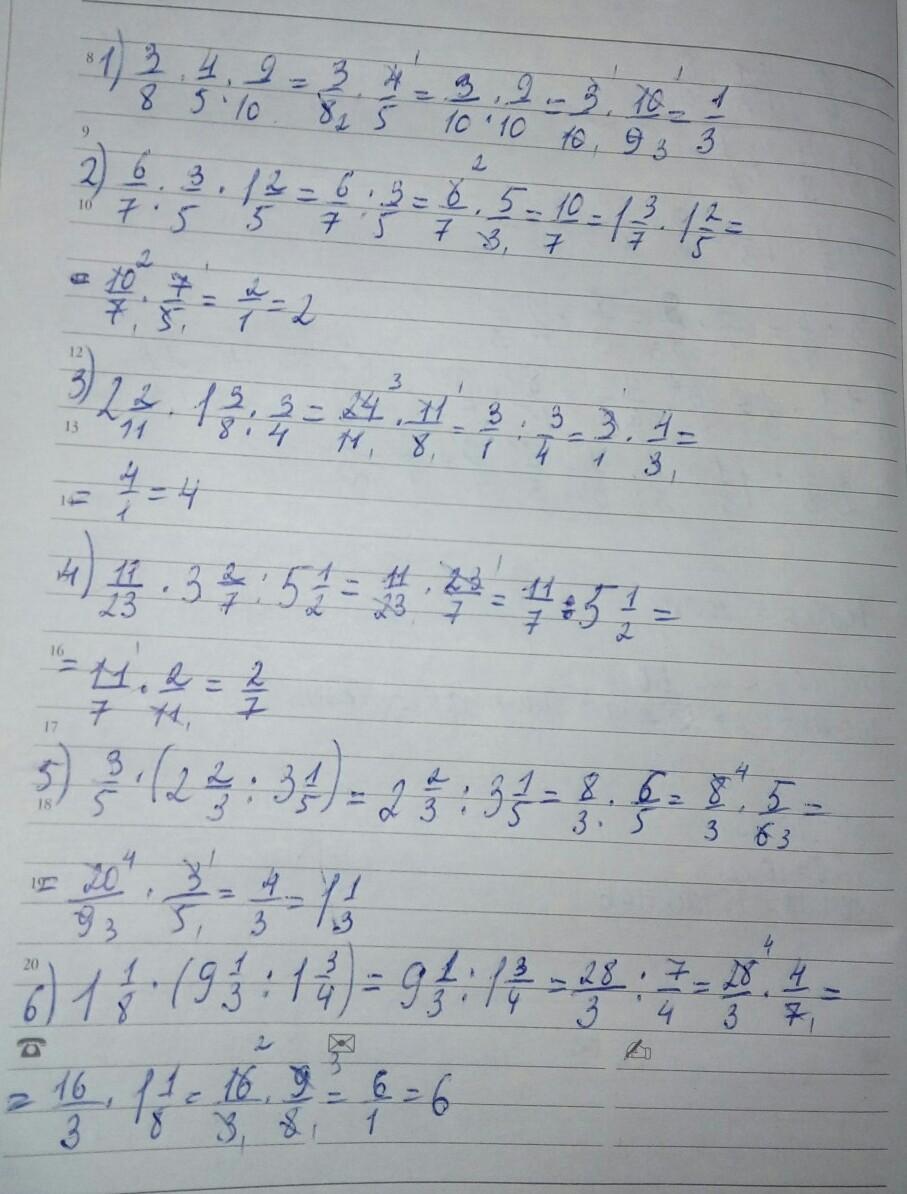 8 1) 3/8 · 4/5 : 9/10 = 3/8 2 · 4/5 1 = 3/10 : 9/10 = 3/10 1 · 10/9 3 = 1/3
9
10 2) 6/7 : 3/5 · 1 2/5 = 6/7 : 3/5 = 6 2/7 · 5/3 1 = 10/7 = 1 3/7 · 1 2/5 =
= 10 2/7 1 · 7 1/5 1 = 2/1 = 2
12
13 3) 2 2/11 · 1 3/8 : 3/4 = 24 3/11 1 · 11 1/8 1 = 3/1 : 3/4 = 3 1/1 · 4/3 1 =
14 = 4/1 = 4
4) 11/23 · 3 2/7 : 5 1/2 = 11/23 · 23 1/7 = 11/7 : 5 1/2 =
16 = 11 1/7 · 2/11 1 = 2/7
17
18 5) 3/5 · (2 2/3 : 3 1/5) = 2 2/3 : 3 1/5 = 8/3 : 6/5 = 8 4/3 · 5/6 3 =
19 = 20 4/9 3 · 3 1/5 1 = 4/3 = 1 1/3
20 6) 1 1/8 · (9 1/3 : 1 3/4) = 9 1/3 : 1 3/4 = 28/3 : 7/4 = 28 4/3 · 4/7 1 =
= 16/3 · 1 1/8 = 16 2/3 1 · 9 3/8 1 = 6/1 = 6